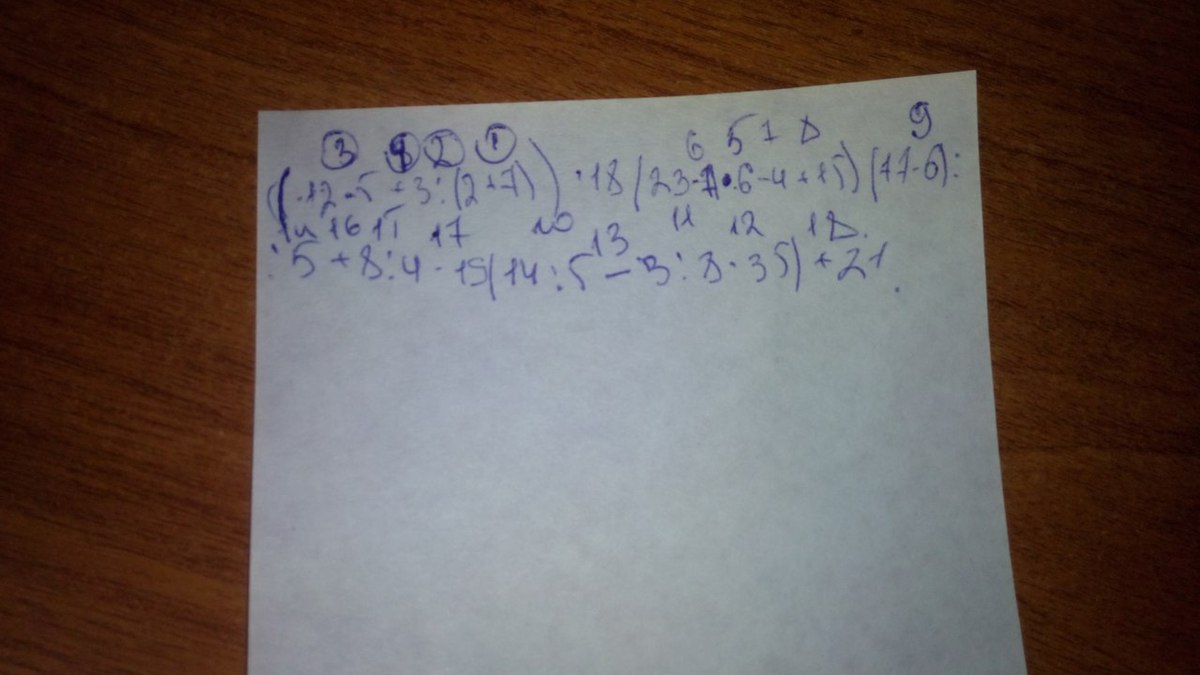 3 4 2 1 6 5 7 8 9
(-12-5+3:(2+7))·18(23-7·6-4+15)(17-6):
14 16 15 17 10 13 11 12 18
:5+8:4-15(14:5-3:8·35)+21